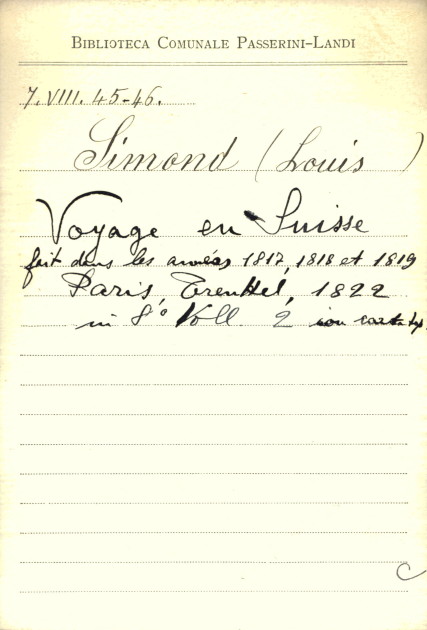 BIBLIOTECA COMUNALE PASSERINI-LANDI
7.VIII.45-46.
Simond (Louis)
Voyage en Suisse
fait dans les années 1817, 1818 et 1819
Paris, Treuttel, 1822
in 8° Voll. 2 con carta
C